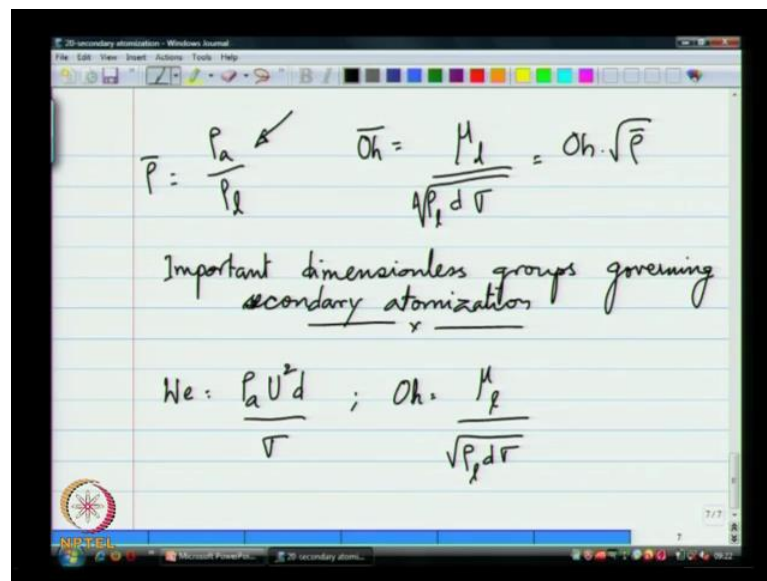 20-secondary atomization - Windows Journal
File Edit View Insert Actions Tools Help
ρ̄ = ρₐ / ρₗ    O̅h̅ = μₗ / √(ρₗ d σ) = Oh · √ρ̄
Important dimensionless groups governing
secondary atomization
We = ρₐ U² d / σ ; Oh = μₗ / √(ρₗ d σ)
7/7
7
NPTEL
Microsoft PowerPoi... 20 secondary atomi... 09:22